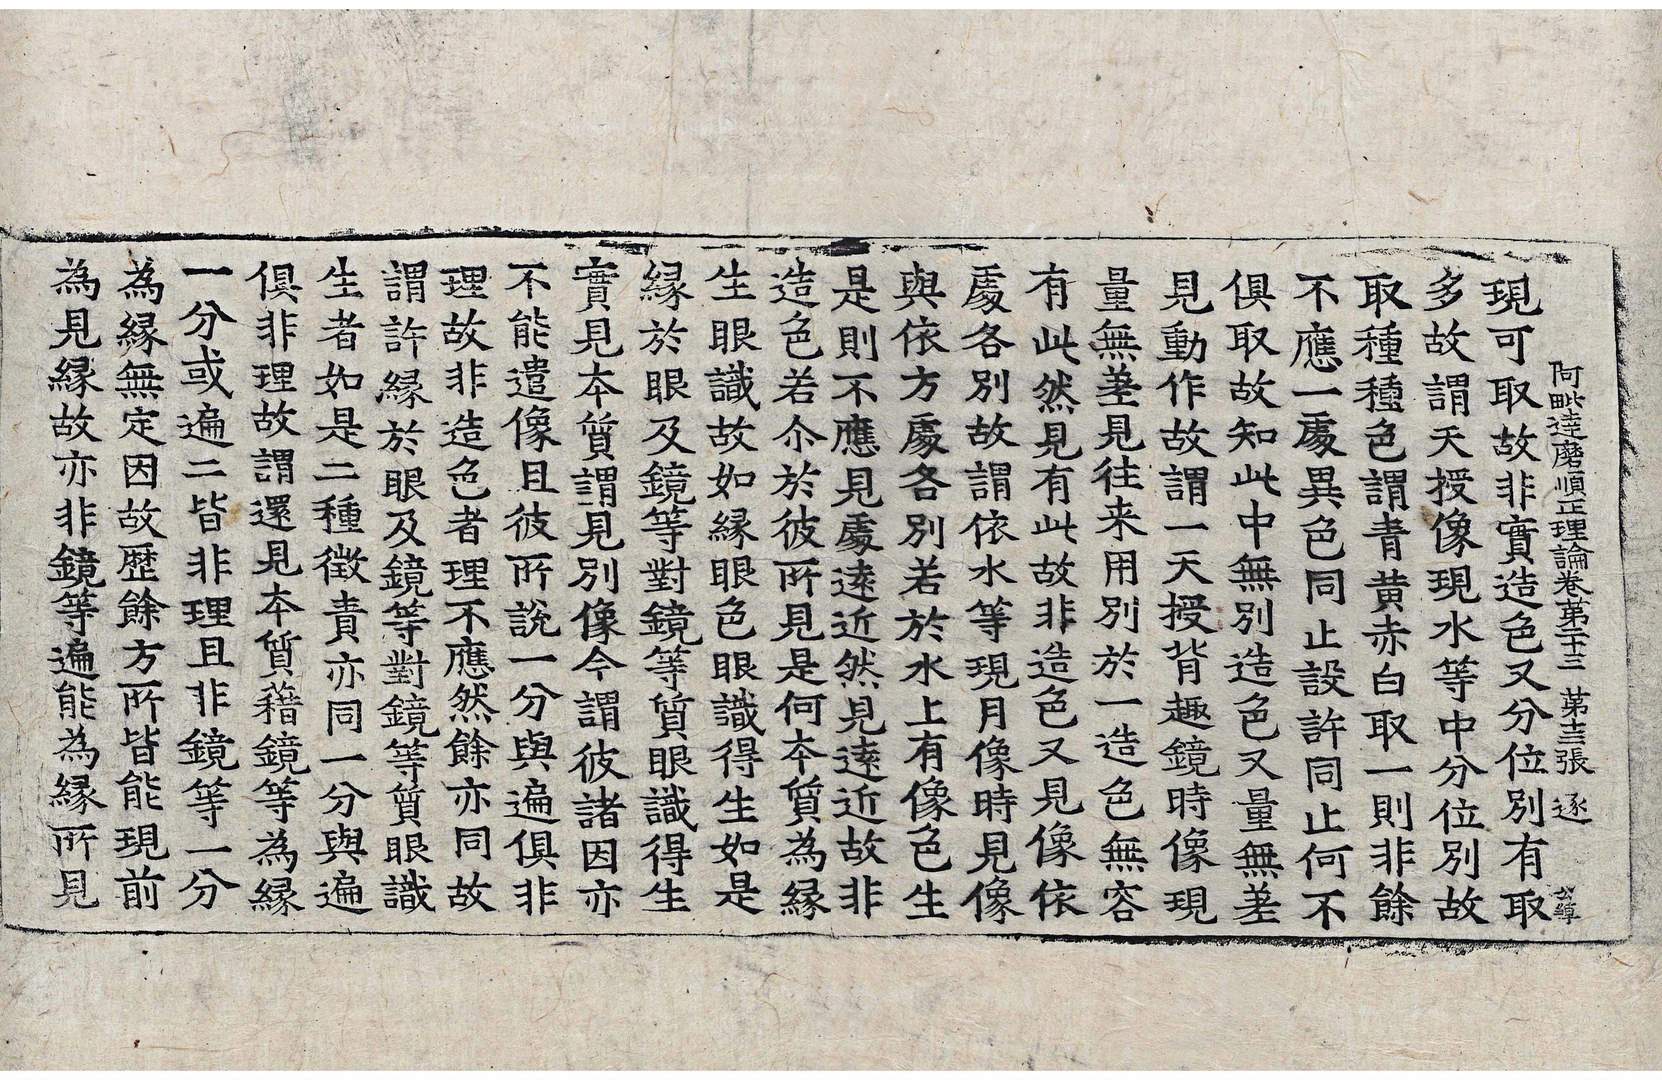 阿毗達磨順正理論卷第二十三 第十三張 逐
現可取故非實造色又分位別有取
多故謂天授像現水等中分位別故
取種種色謂青黄赤白取一則非餘
不應一處異色同止設許同止何不
俱取故知此中無別造色又量無差
見動作故謂一天授背趣鏡時像現
量無差見往来用別於一造色無容
有此然見有此故非造色又見像依
處各別故謂依水等現月像時見像
與依方處各別若於水上有像色生
是則不應見處遠近然見遠近故非
造色若尒於彼所見是何本質為緣
生眼識故如緣眼色眼識得生如是
緣於眼及鏡等對鏡等質眼識得生
實見本質謂見別像今謂彼諸因亦
不能遣像且彼所說一分與遍俱非
理故非造色者理不應然餘亦同故
謂許緣於眼及鏡等對鏡等質眼識
生者如是二種徵責亦同一分與遍
俱非理故謂還見本質藉鏡等為緣
一分或遍二皆非理且非鏡等一分
為緣無定因故歷餘方所皆能現前
為見緣故亦非鏡等遍能為緣所見